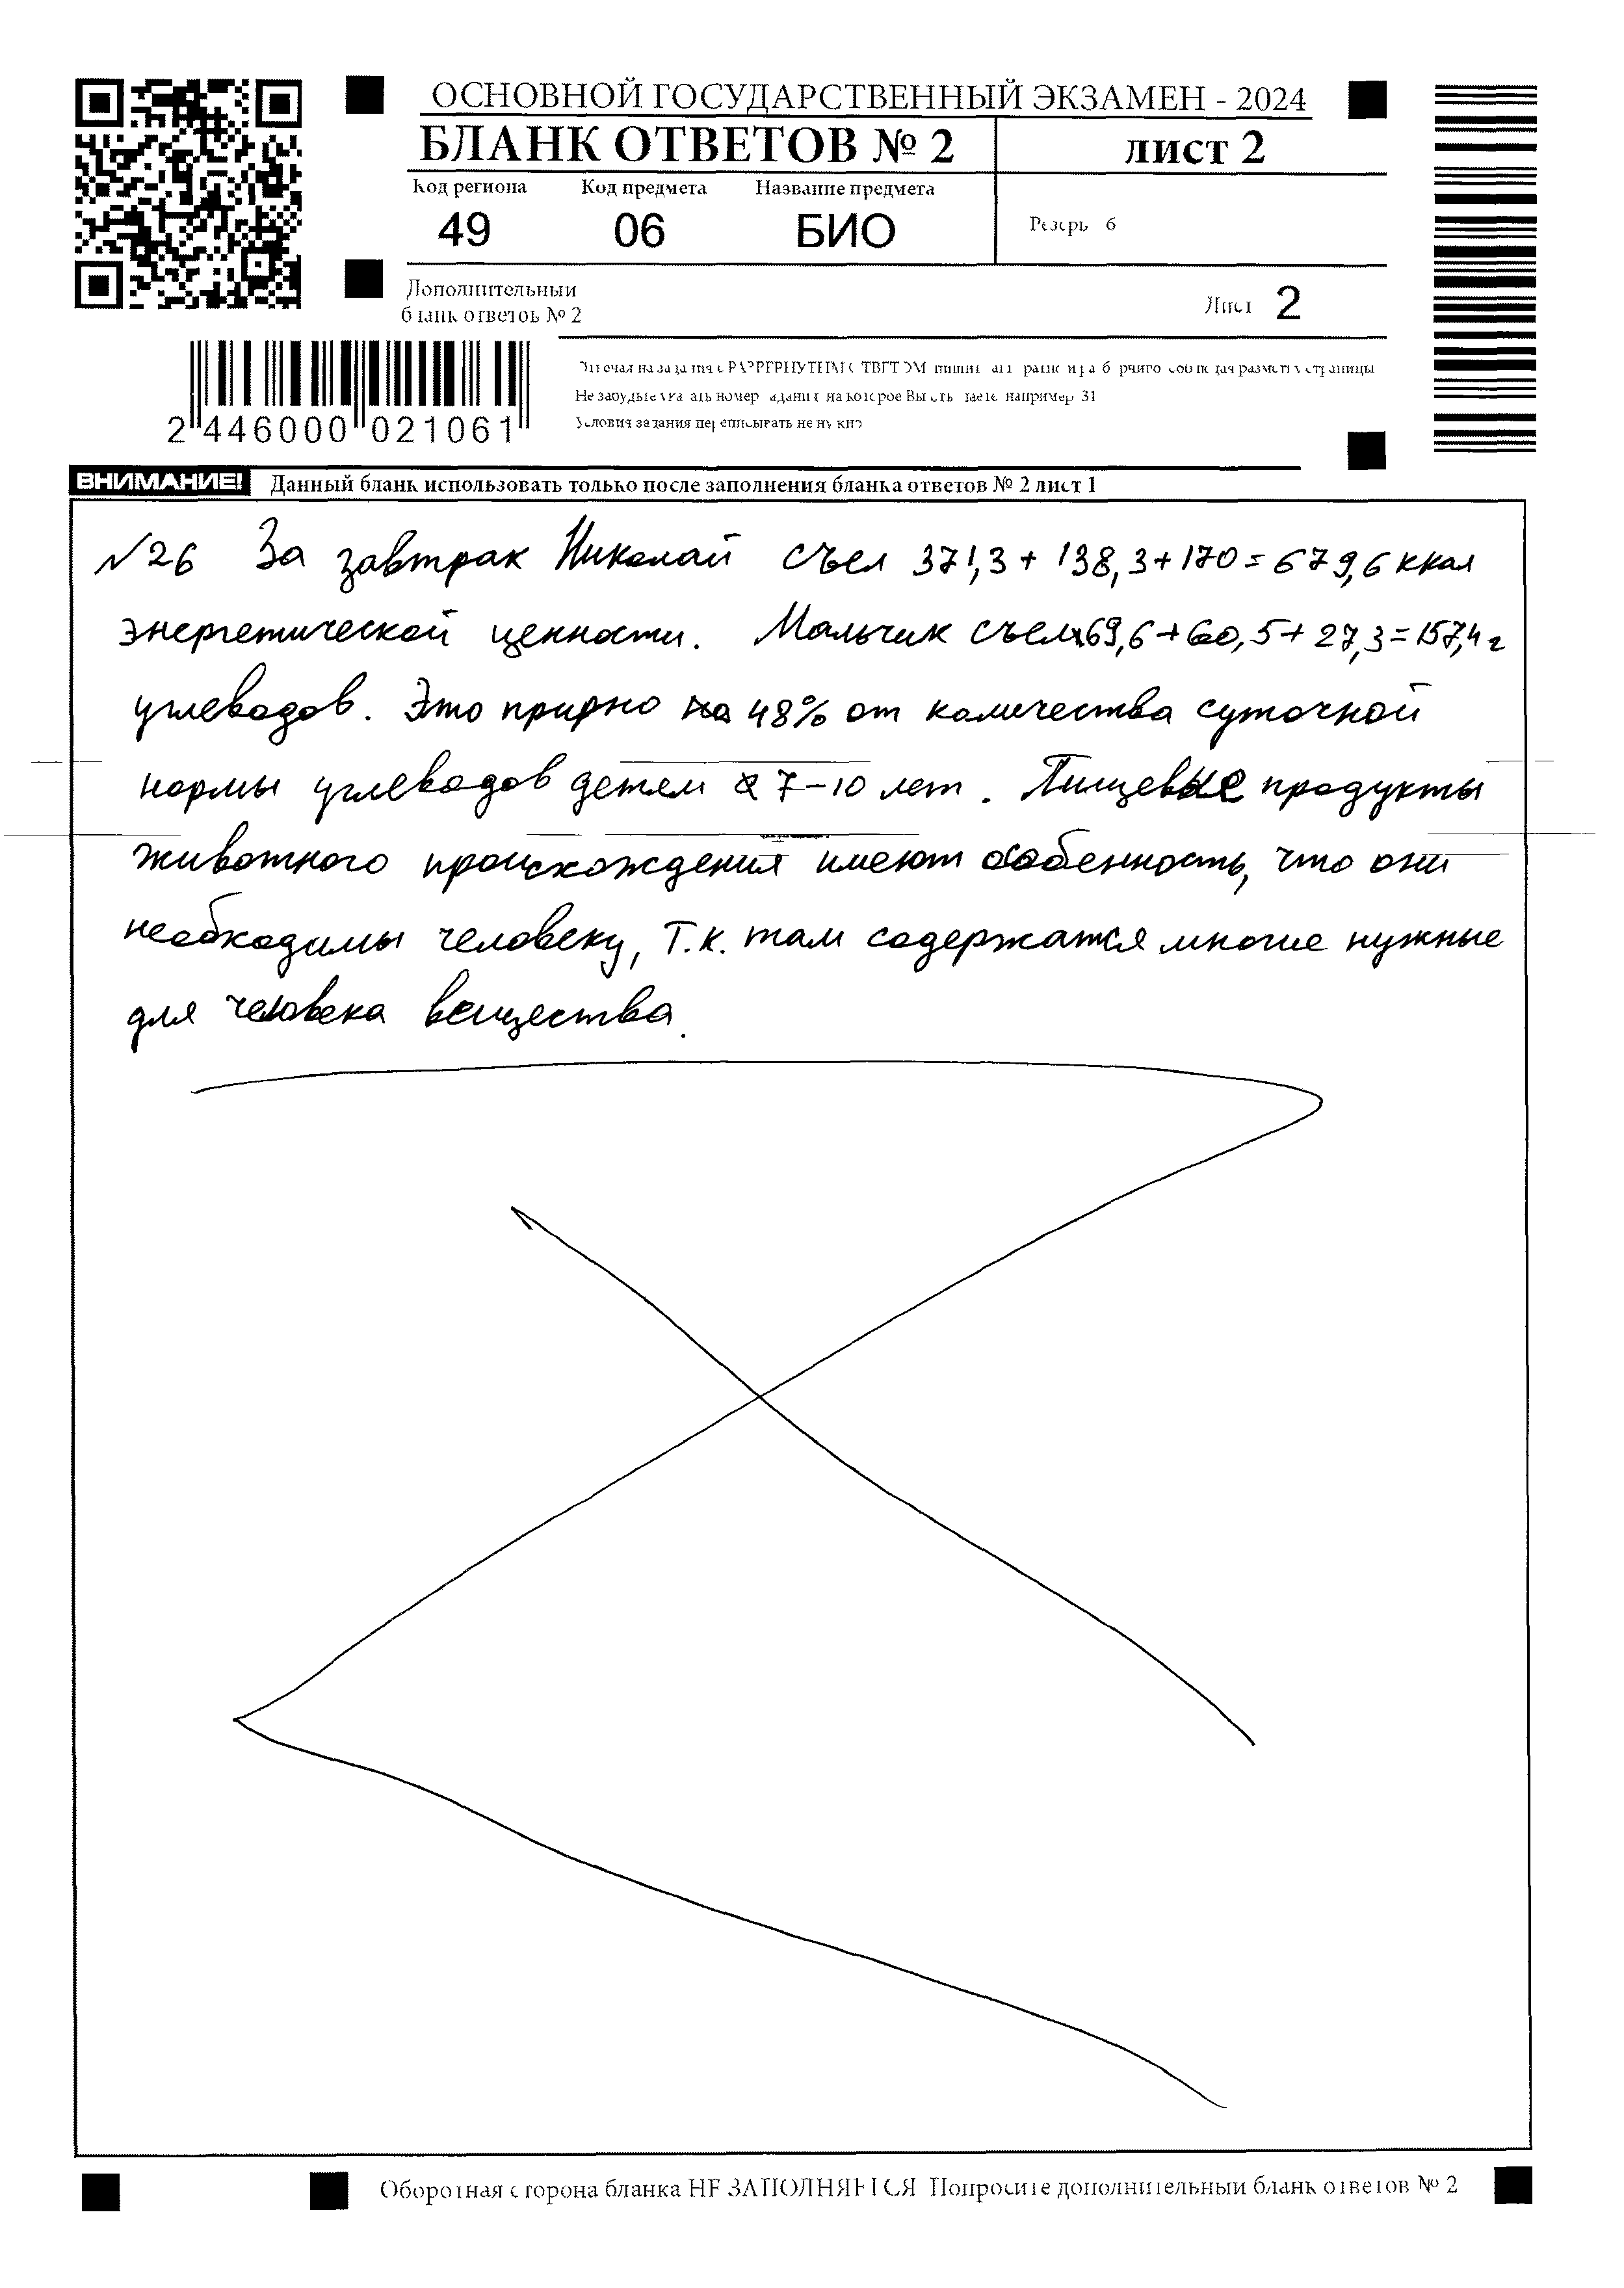 ОСНОВНОЙ ГОСУДАРСТВЕННЫЙ ЭКЗАМЕН - 2024
БЛАНК ОТВЕТОВ № 2
ЛИСТ 2
Код региона Код предмета Название предмета
49 06 БИО
Резерв 6
Дополнительный
бланк ответов № 2
Лист 2
2 446000 021061
Отвечая на задания с РАЗВЕРНУТЫМ ОТВЕТОМ страницы
Не забудьте указать номер задания на которое Вы например 31
Условия задания переписывать не нужно
ВНИМАНИЕ! Данный бланк использовать только после заполнения бланка ответов № 2 лист 1
№26 За завтрак Николай съел 371,3 + 138,3 + 170 = 679,6 ккал
энергетической ценности. Мальчик съел 69,6 + 60,5 + 27,3 = 157,4 г
углеводов. Это 48% от количества суточной
нормы углеводов детей 7-10 лет. Пищевые продукты
животного происхождения имеют особенность, что они
необходимы человеку, т.к. там содержатся многие нужные
для человека вещества.
Оборотная сторона бланка НЕ ЗАПОЛНЯЕТСЯ Попросите дополнительный бланк ответов № 2